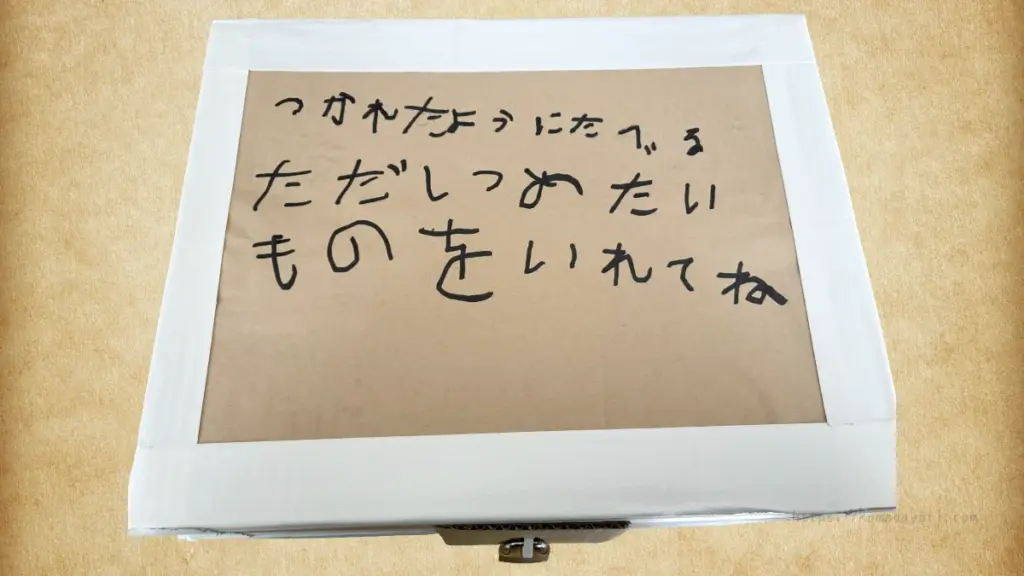 つかれたようにたべる
ただしつめたい
ものをいれてね